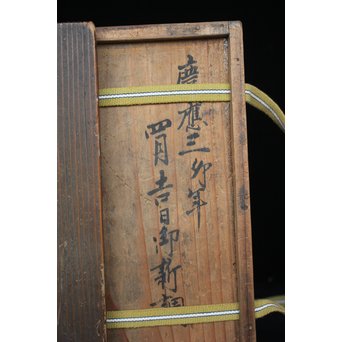 慶應三卯年
四月吉日御新調